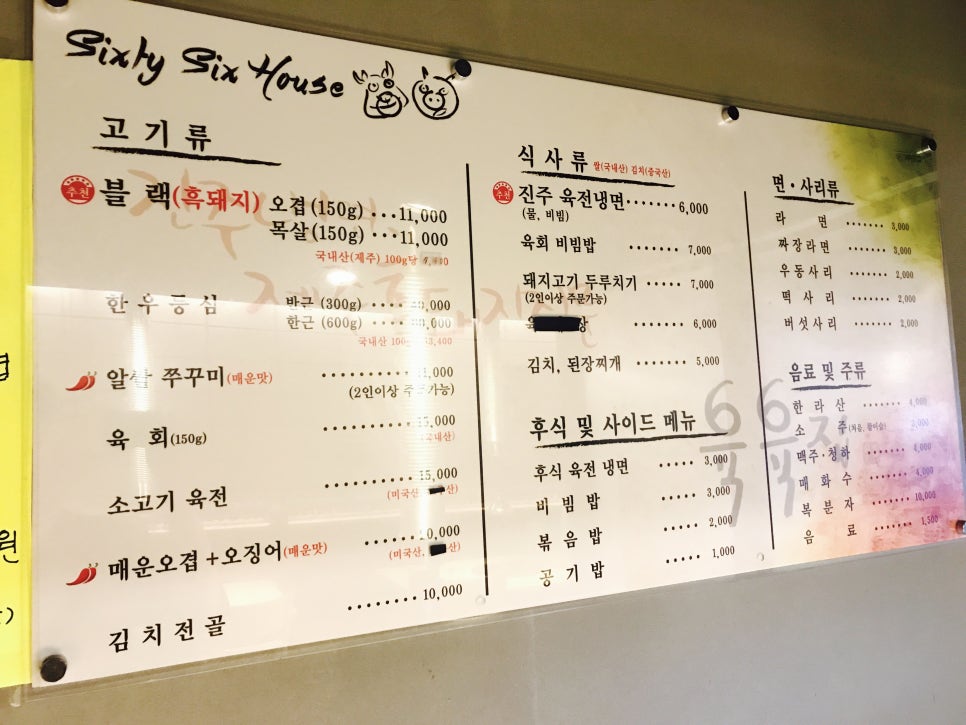 Sixty Six House
고기류
추천 블랙(흑돼지) 오겹(150g) ···11,000
목살(150g) ···11,000
국내산(제주) 100g당
한우등심 반근 (300g)
한근 (600g)
국내산
알쌈 쭈꾸미(매운맛)
(2인이상 주문가능)
육 회(150g)
(국내산)
소고기 육전 15,000
(미국산, 산)
매운오겹+오징어(매운맛)
(미국산, 산)
김치전골 ········10,000
식사류 쌀(국내산) 김치(중국산)
추천 진주 육전냉면·······6,000
(물, 비빔)
육회 비빔밥 ·······7,000
돼지고기 두루치기 ·····7,000
(2인이상 주문가능)
상 6,000
김치, 된장찌개 ·······5,000
후식 및 사이드 메뉴
후식 육전 냉면 ·····3,000
비빔밥 ·····3,000
볶음밥 ·····2,000
공기밥 ·····1,000
면·사리류
라 면 ·······3,000
짜장라면 ·······3,000
우동사리 ·······2,000
떡 사 리 ·······2,000
버섯사리 ·······2,000
음료 및 주류
한 라 산 ·······4,000
소 주
맥주·청하 ·······4,000
매 화 수 ·······4,000
복 분 자 ·······10,000
음 료 ·······1,500
육육집
원